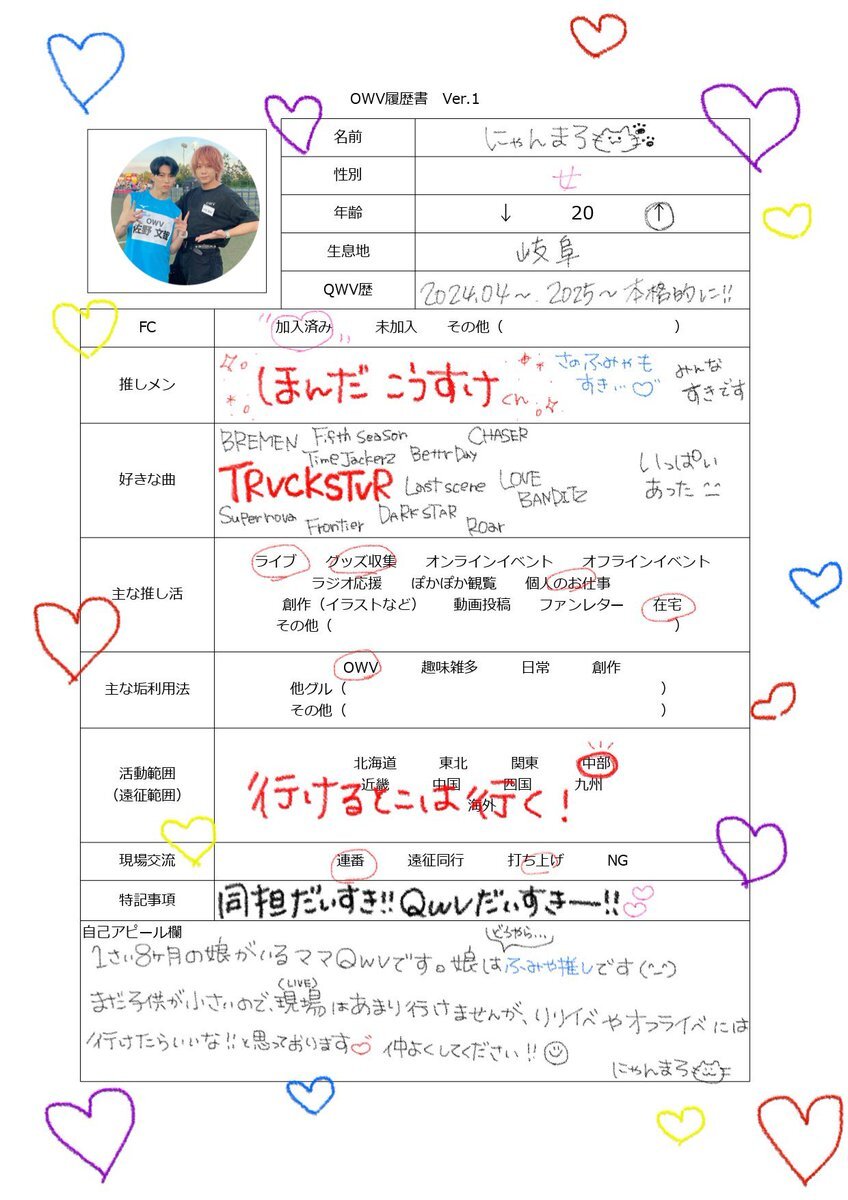 OWV履歴書 Ver.1
OWV
佐野 文哉
名前 にゃんまろ
性別 女
年齢 ↓ 20 ↑
生息地 岐阜
QWV歴 2024.04～.2025～本格的に!!
FC "加入済み" 未加入 その他（ ）
推しメン ほんだ こうすけくん さのふみやもすき…♡ みんなすきです
好きな曲
BREMEN Fifth Season CHASER
Time Jackerz Bettr Day
TRVCKSTVR Last scene LOVE BANDITZ
Supernova Frontier DARK STAR Roar
いっぱい
あった
主な推し活
ライブ グッズ収集 オンラインイベント オフラインイベント
ラジオ応援 ぽかぽか観覧 個人のお仕事
創作（イラストなど） 動画投稿 ファンレター 在宅
その他（ ）
主な垢利用法
OWV 趣味雑多 日常 創作
他グル（ ）
その他（ ）
活動範囲
（遠征範囲）
北海道 東北 関東 中部
近畿 中国 四国 九州
海外
行けるとこは行く！
現場交流 連番 遠征同行 打ち上げ NG
特記事項 同担だいすき!!QWVだいすきー!!
自己アピール欄
どうやら…
1さい8ヶ月の娘がいるママQWVです。娘はふみや推しです(^-^)
(LIVE)
まだ子供が小さいので、現場はあまり行けませんが、リリイベやオフライベには
行けたらいいな!!と思っております♡ 仲よくしてください!!
にゃんまろ